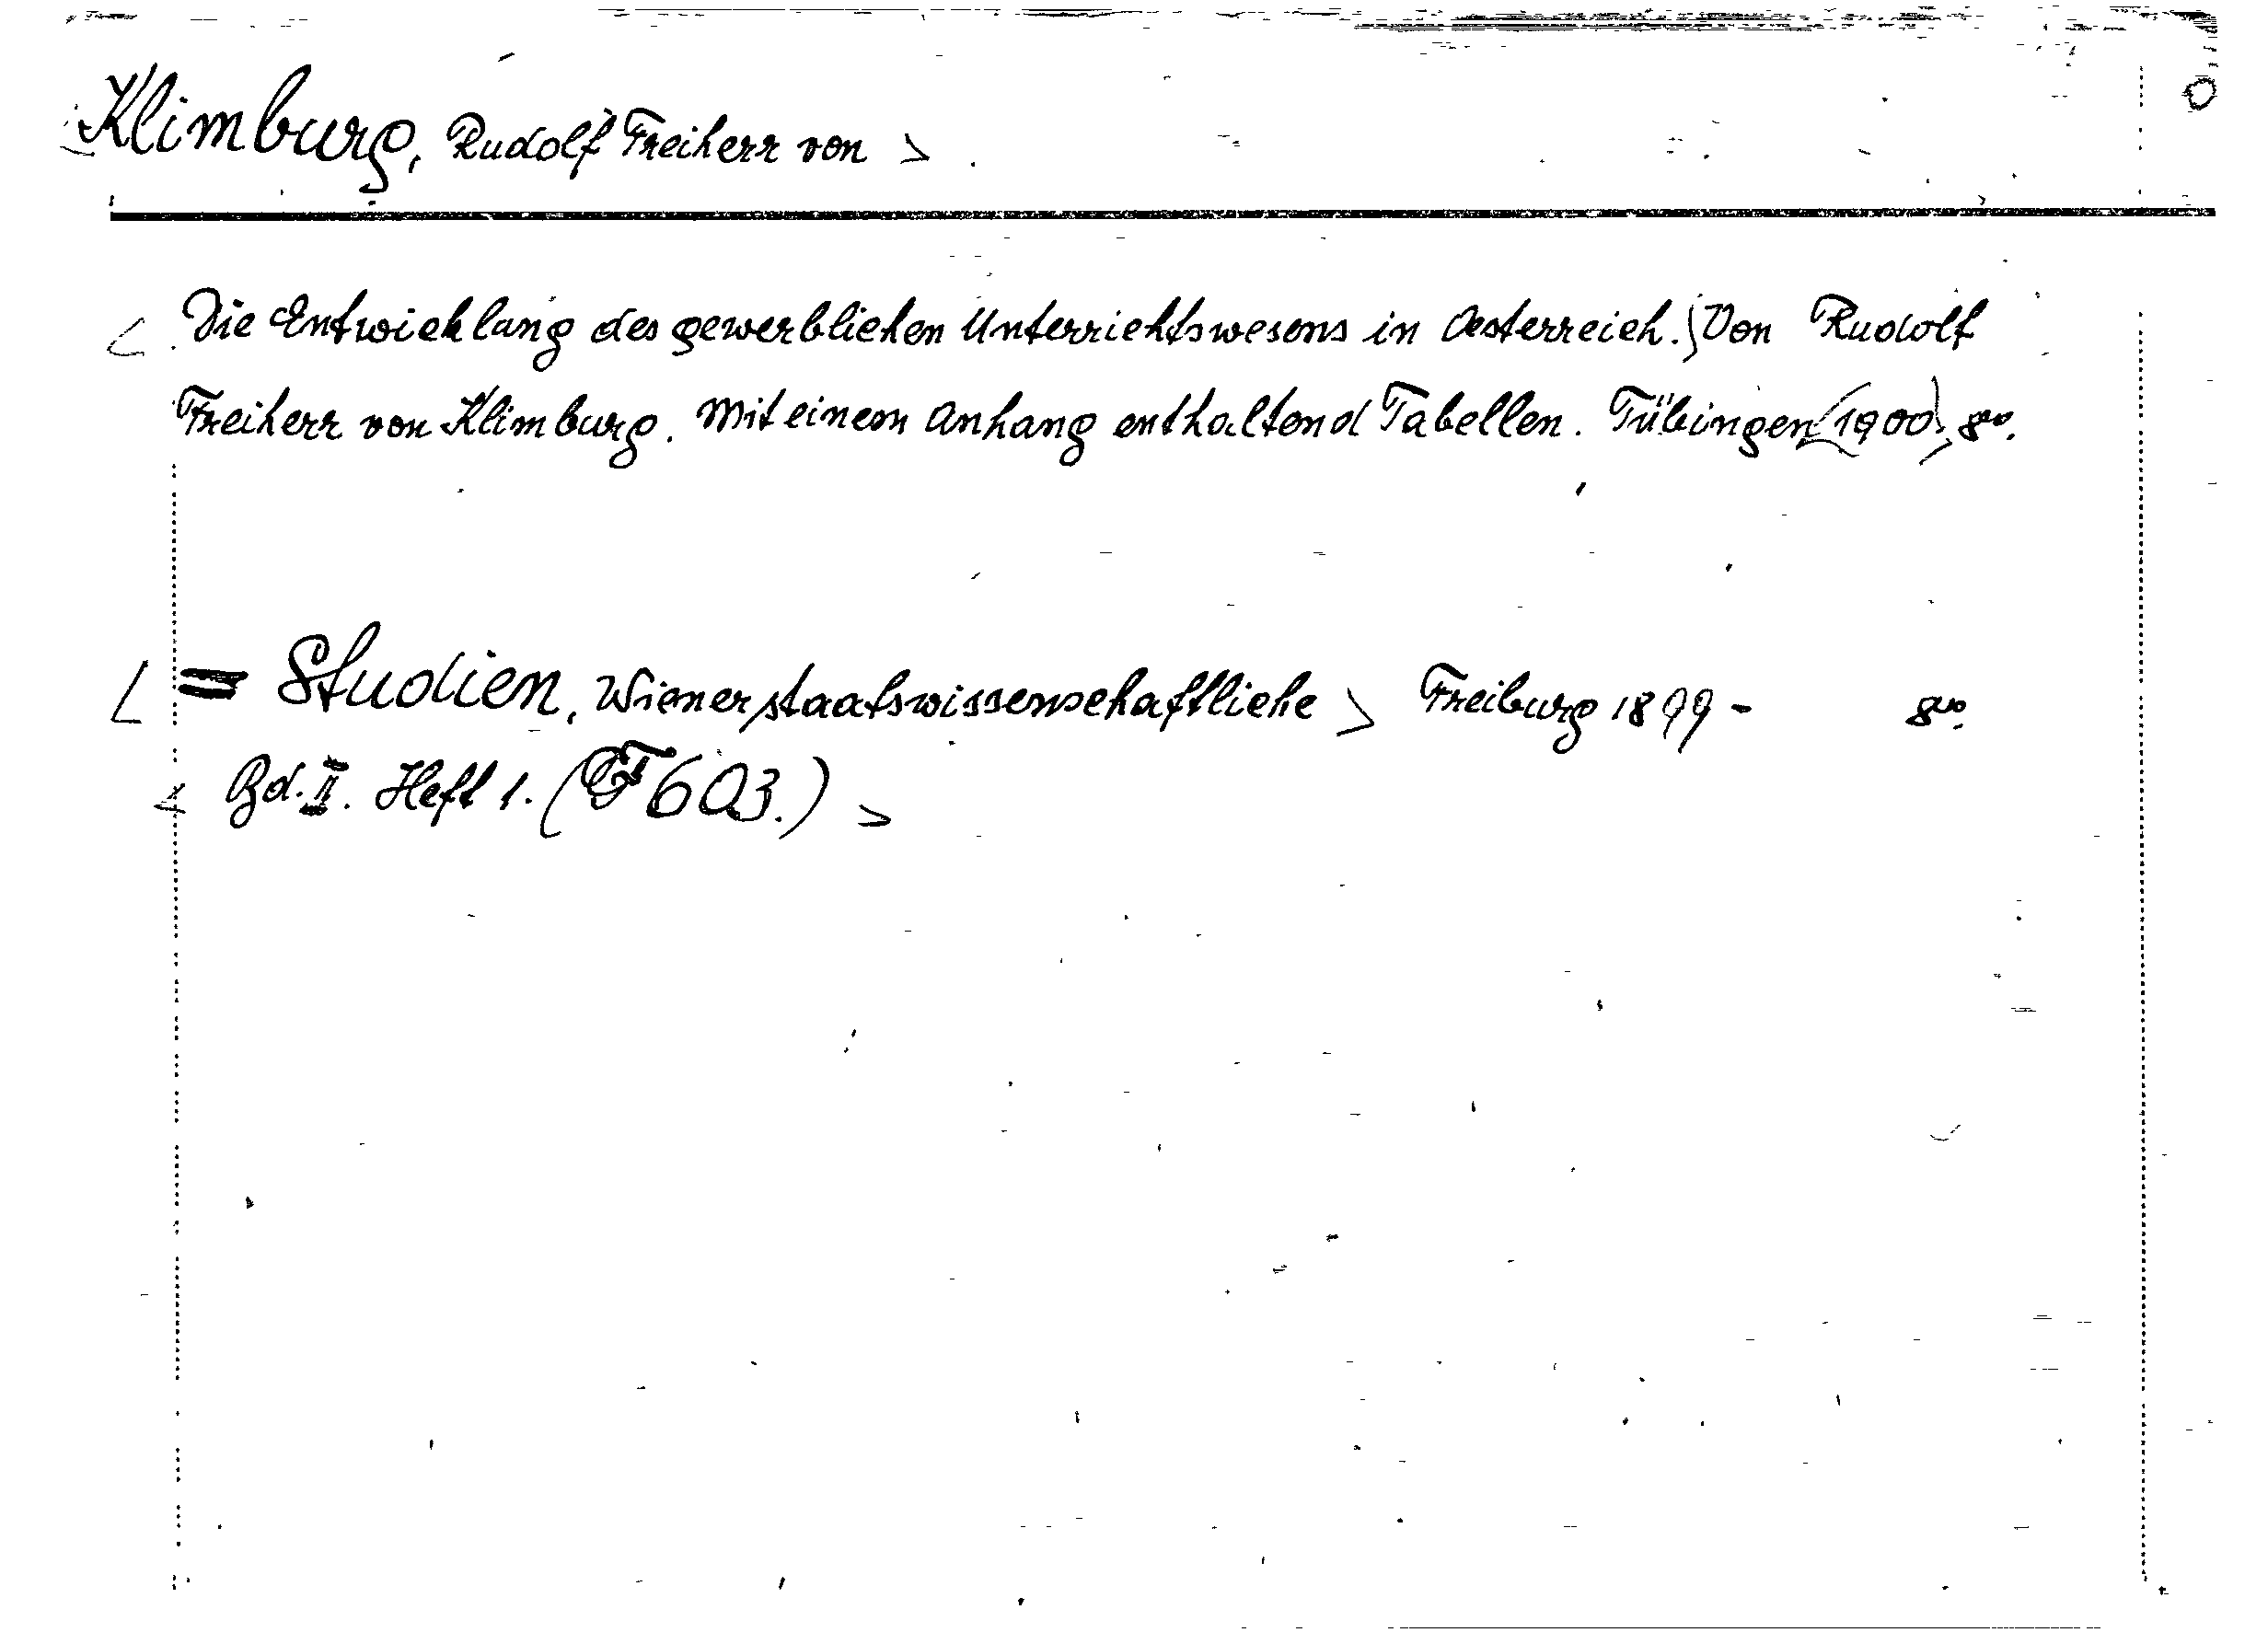 Klimburg, Rudolf Freiherr von >
< Die Entwicklung des gewerblichen Unterrichtswesens in Oesterreich. Von Rudolf
Freiherr von Klimburg. Mit einem Anhang enthaltend Tabellen. Tübingen (1900). 8vo.
[ = Studien, Wiener staatswissenschaftliche > Freiburg 1899 - 8vo.
< Bd. II. Heft 1. (F 603.) >